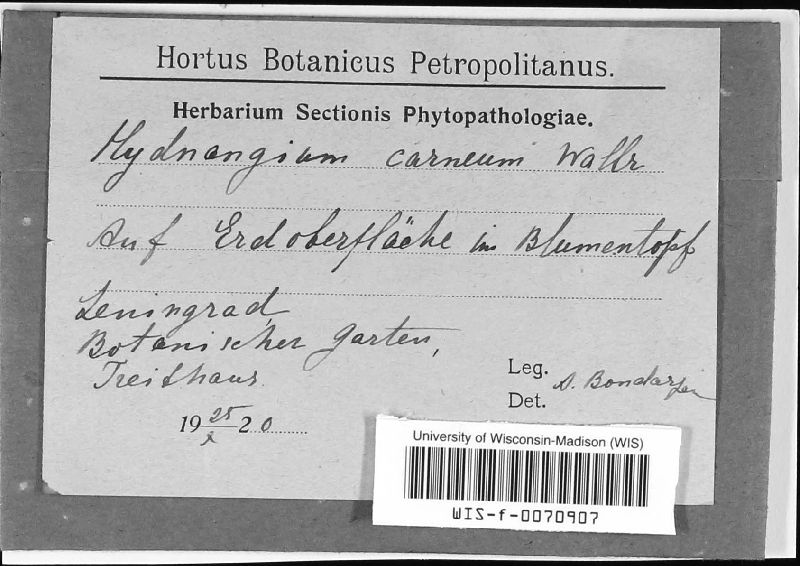 Hortus Botanicus Petropolitanus.
Herbarium Sectionis Phytopathologiae.
Hydnangium carneum Wallr
Auf Erdoberfläche im Blumentopf
Leningrad,
Botanischer Garten,
Treibhaus.
Leg.
Det.
A. Bondarzew
19 25/X 20
University of Wisconsin-Madison (WIS)
WIS-f-0070907